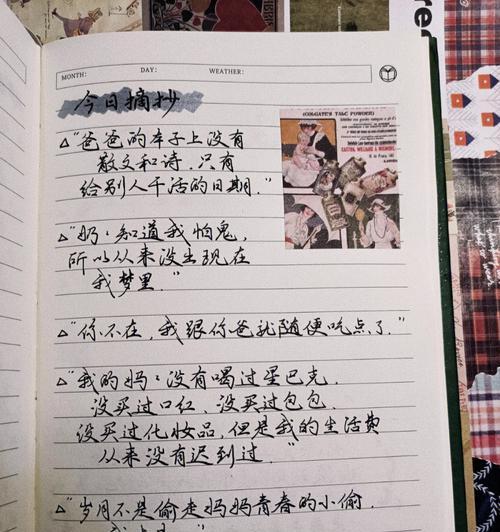 MONTH: DAY: WEATHER:
今日摘抄
"爸爸的本子上没有
散文和诗,只有
给别人干活的日期."
(COLGATE'S TALC POWDER)
"奶奶知道我怕鬼,
所以从来没出现在
我梦里."
"你不在,我跟你爸就随便吃点了."
"我的妈妈没有喝过星巴克.
没买过口红、没买过包包.
没买过化妆品,但是我的生活费
从来没有迟到过."
"岁月不是偷走妈妈青春的小偷.